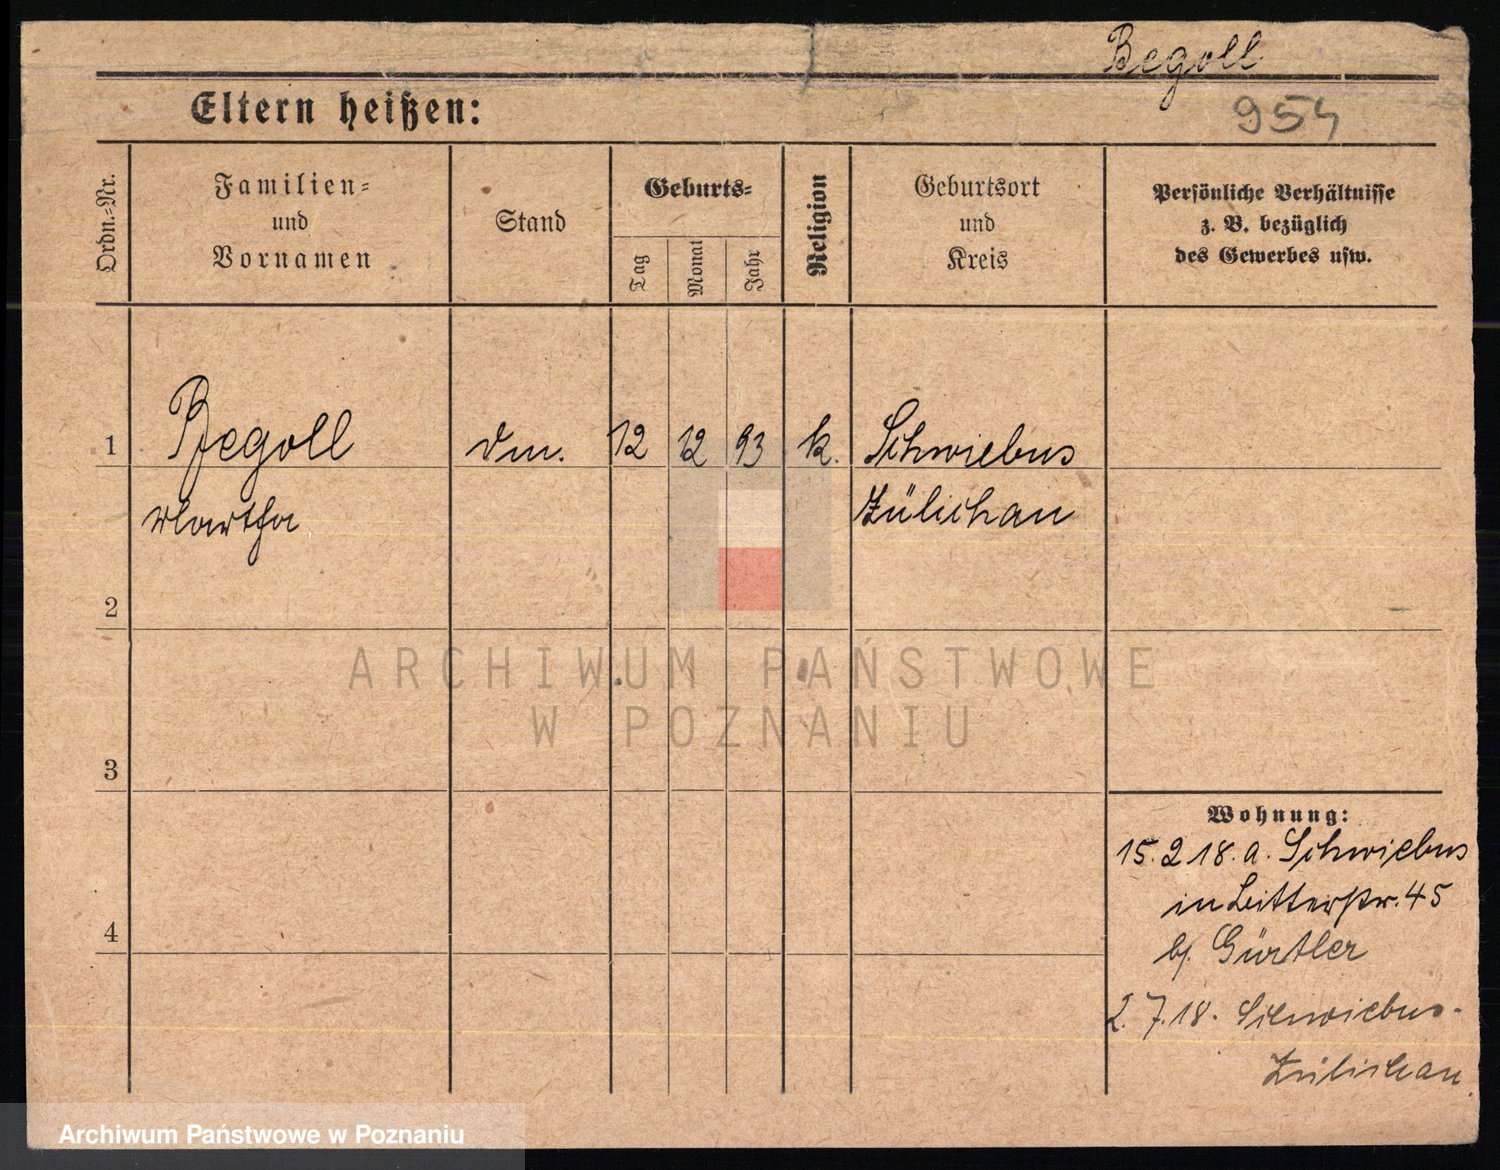 Begoll
Eltern heißen:
954
Ordn.-Nr.
Familien-
und
Vornamen
Stand
Geburts-
Tag
Monat
Jahr
Religion
Geburtsort
und
Kreis
Persönliche Verhältnisse
z. B. bezüglich
des Gewerbes usw.
1 Begoll 12 12 93 k. Schwiebus
Martha Züllichau
2
ARCHIWUM PAŃSTWOWE
W POZNANIU
3
Wohnung:
15. 2 18. a. Schwiebus
in Ritterstr. 45
b/ Gürtler
4
2. 7. 18. Schwiebus-
Züllichau
Archiwum Państwowe w Poznaniu